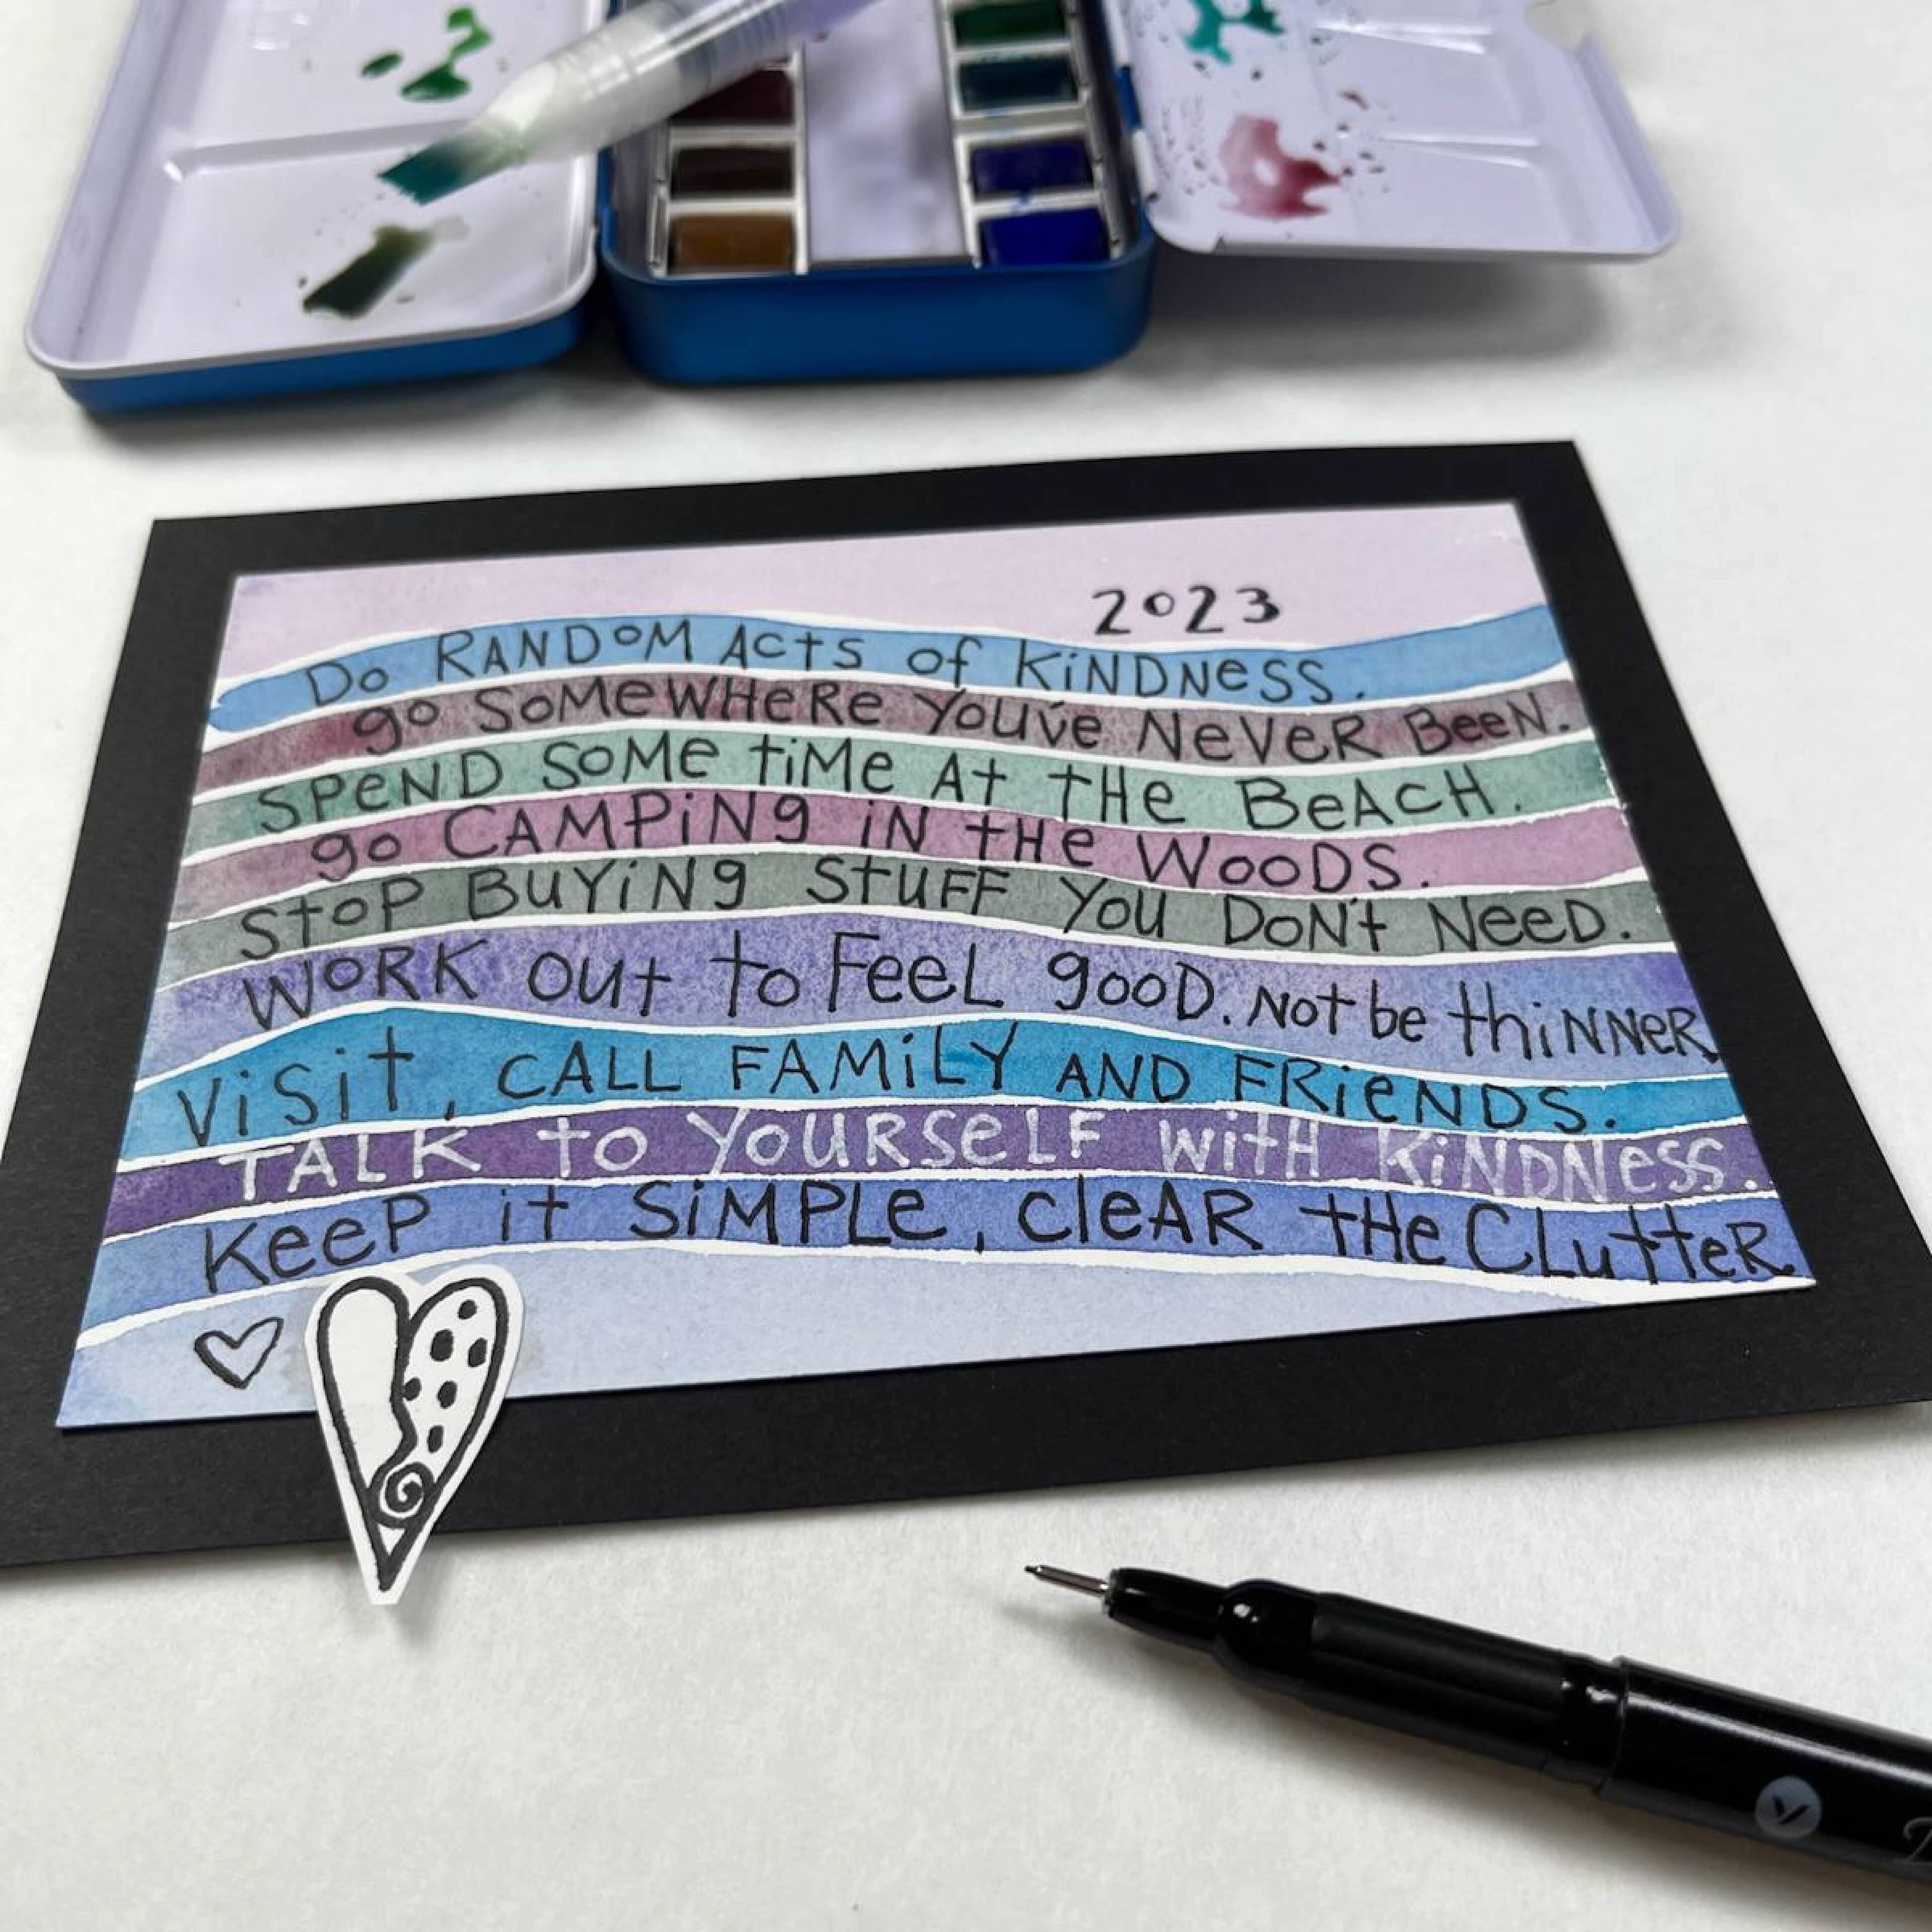 2023
Do RANDOM Acts of KiNDNess.
go SoMewHeRe You've NeveR BeeN.
SPeND SoMe tiMe At tHe BeAcH.
go CAMPiNg iN tHe WooDS.
StoP BuYiNg StuFF You DoN't NeeD.
WoRK out to FeeL gooD. Not be thiNNeR
Visit, CALL FAMiLY AND FRieNDS.
TALK to YouRSeLF witH KiNDNess.
KeeP it SiMPLe, cleAR tHe CLutteR